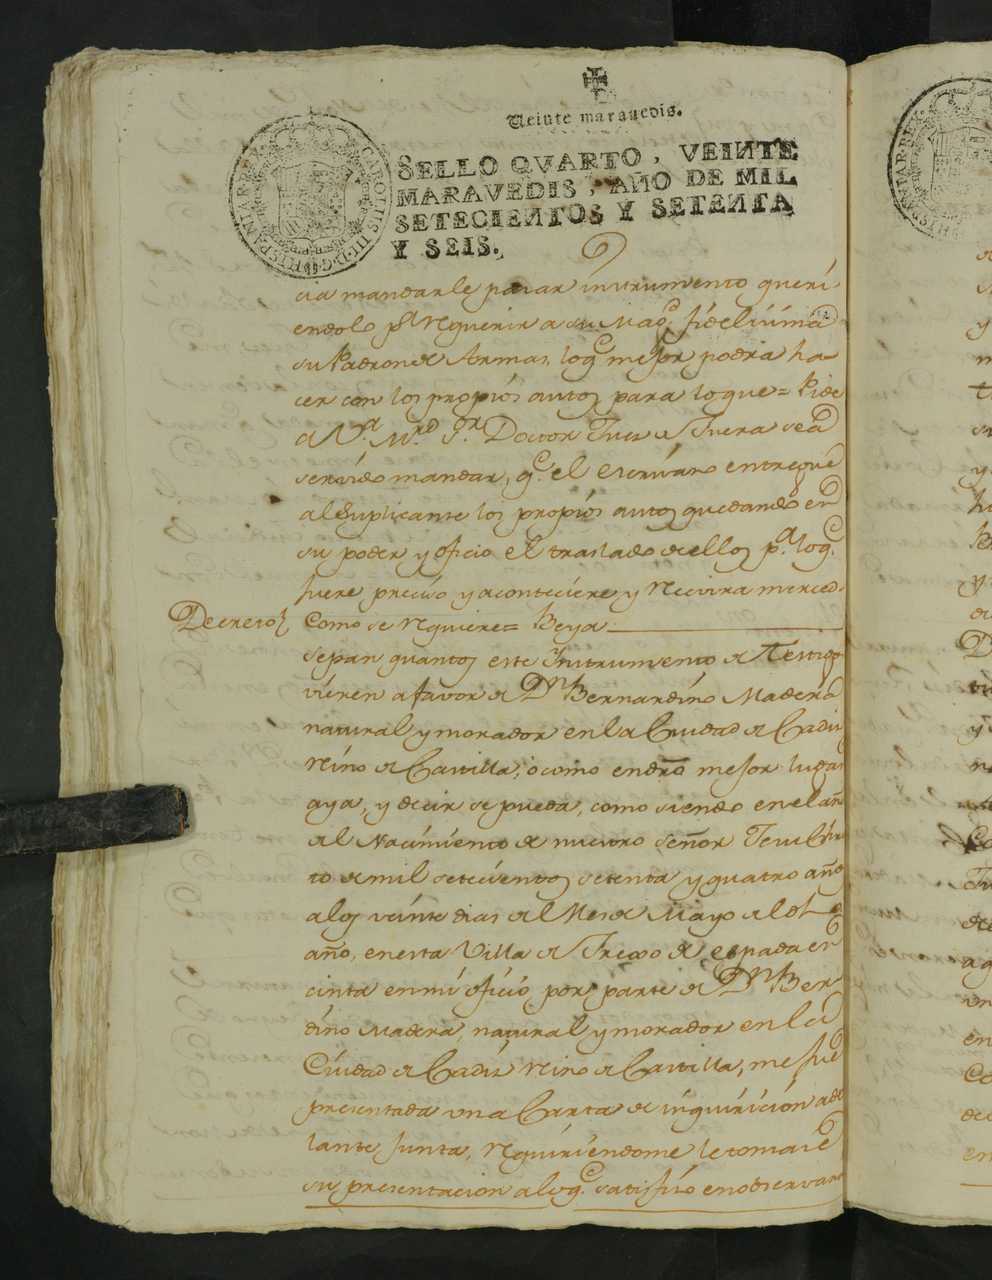 Veinte marauedis.
SELLO QVARTO, VEINTE
MARAVEDIS, AÑO DE MIL
SETECIENTOS Y SETENTA
Y SEIS.
CAROLUS III D.G. HISPANIAR. REX
cia mandarle pasar instrumento queri-
endolo pa. requerir a su Magd. fidelisima
su Padron de Armas, loq. mejor podra ha-
cer con los propios autos para loque = Pide
a V.a M.rd S.r Doctor Juez de Fuera sea
servido mandar, q.e el escrivano entregue
al Suplicante los propios autos quedando en
su poder y oficio el traslado de ellos p.a loq.e
fuere preciso y aconteciere, y Recivira merced.
Decreto
Como se requiere = Beya
Sepan quantos este Instrumento de Testigo
vieren a favor de Dn. Bernardino Madera
natural y morador en la Ciudad de Cadiz
Reino de Castilla, o como en dro. mejor lugar
aya, y decir se pueda, como siendo en el año
del Nacimiento de nuestro señor Jesu Chris
to de mil setecientos setenta y quatro años
a los veinte dias del Mes de Mayo del dho
año, en esta Villa de Frexo de espada en
cinta en mi oficio por parte de Dn. Ber-
dino Madera, natural y morador en la
Ciudad de Cadiz Reino de Castilla, me fue
presentada una Carta de inquiricion ade
lante junta, requiriendome le tomase
su presentacion a loq.e satisfizo en observan